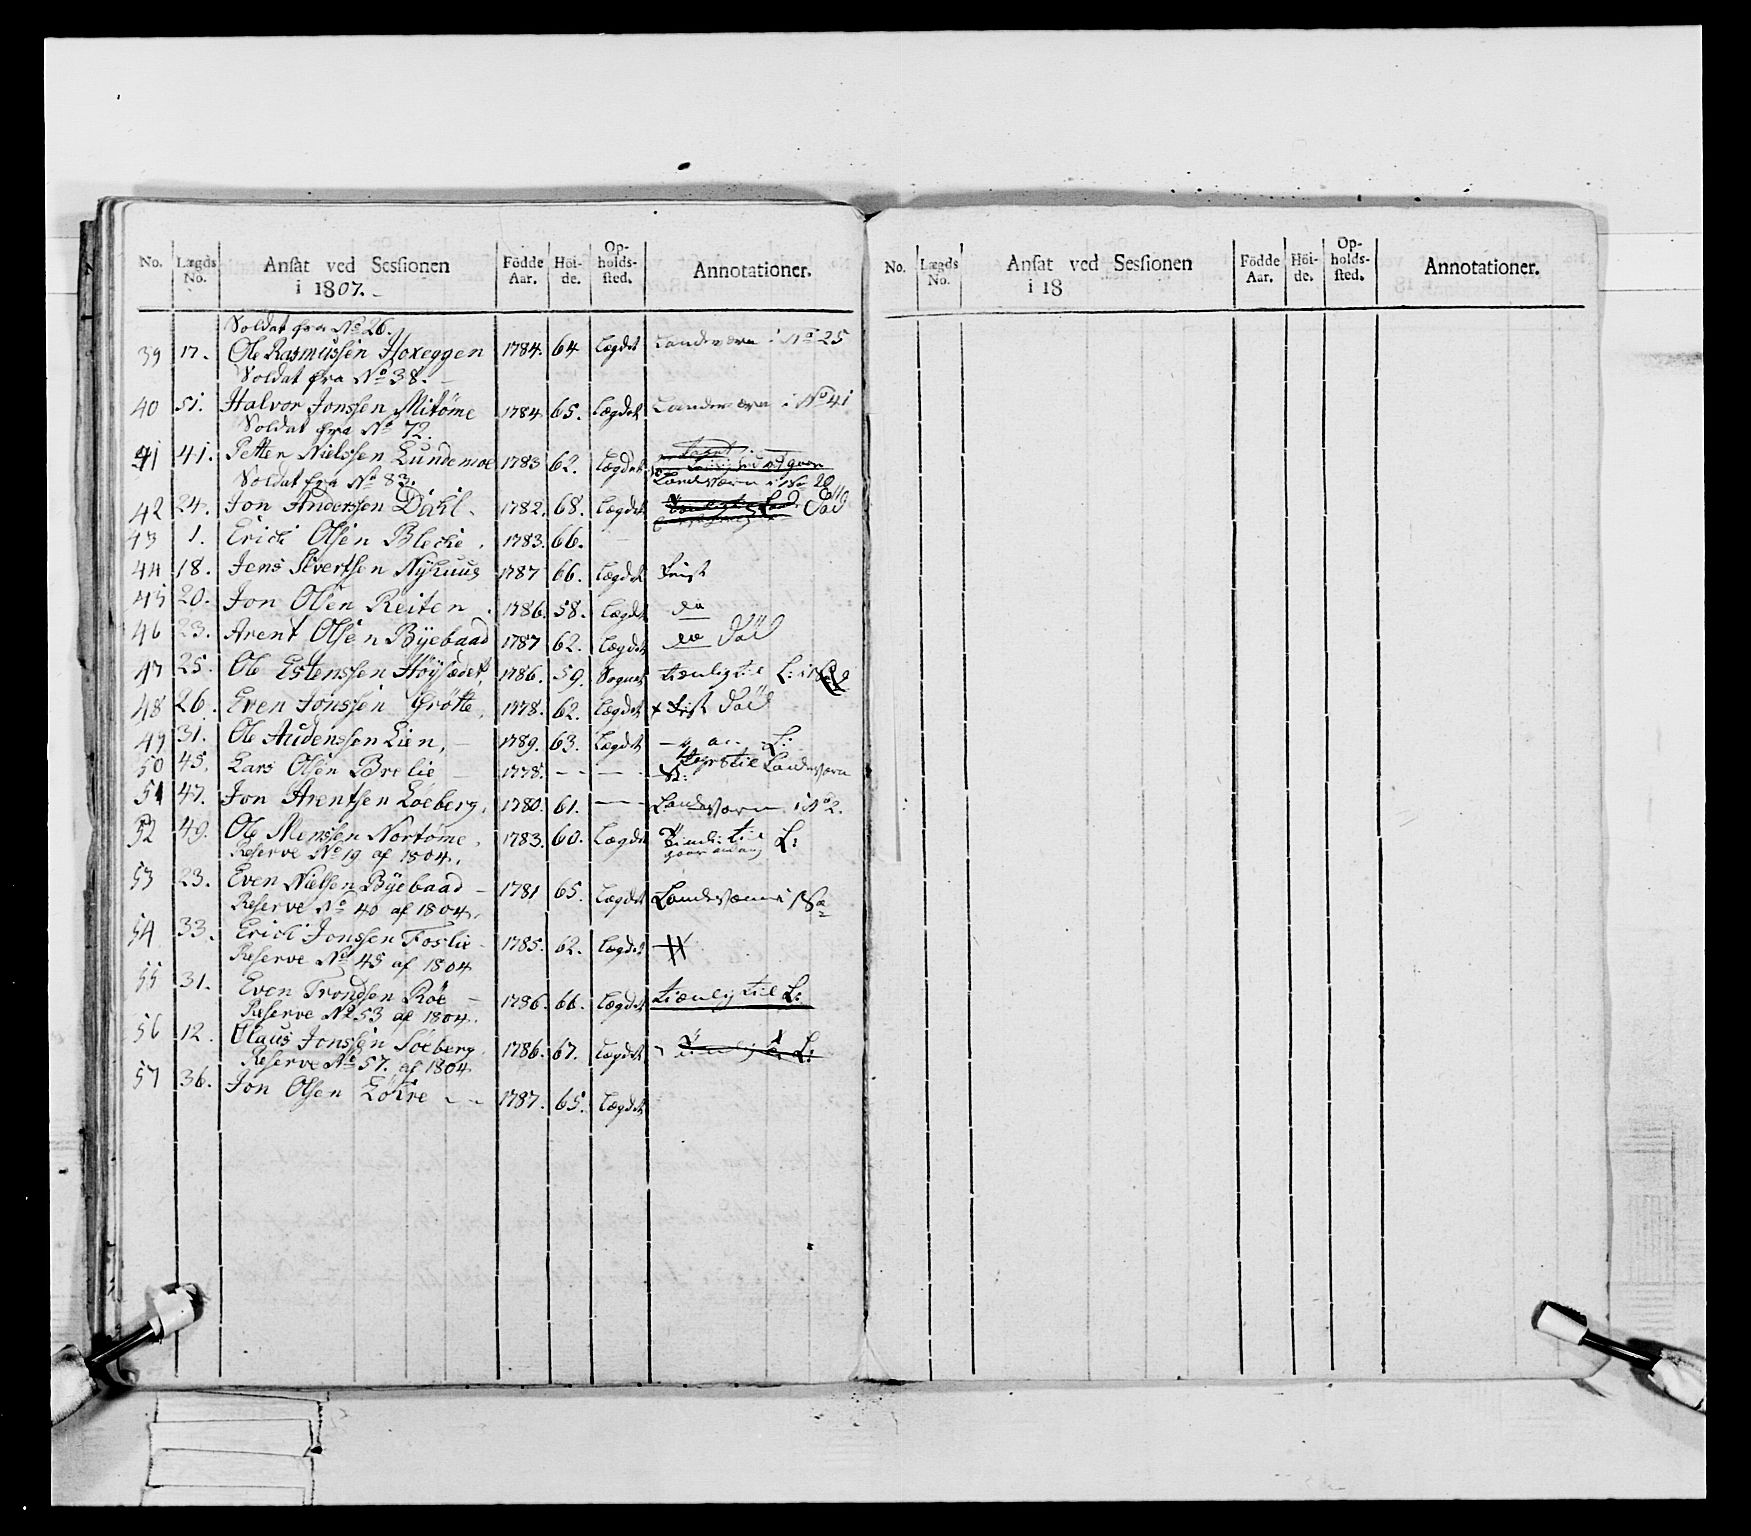 No. Lægds No. Ansat ved Sessionen i 1807. Födde Aar. Höi- de. Op- holds- sted. Annotationer.
Soldat fra No 26.
39 17. Ole Rasmussen Hoxeggen 1784. 64 Lægdet Landeværn i No 25
Soldat fra No 38.
40 51. Halvor Jonssen Mitöme 1784 65. Lægdet Landeværn i No 41
Soldat fra No 72.
41 41. Petter Nielssen Lundemoe 1783 62. Lægdet
Landeværn i No 20
Soldat fra No 83.
42 24. Jon Anderssen Dahl. 1782. 68. Lægdet Död
43 1. Erich Olsen Bleche. 1783. 66.
44 18. Jens Sivertsen Nyhuus 1787 66. Lægdet Frist
45 20. Jon Olsen Reiten 1786. 58. Lægdet do
46 23. Arent Olsen Byebaad 1787 62. Lægdet do Död
47 25. Ole Estenssen Höysædet, 1786. 59. Sognet tienlig til L:
48 26. Even Jonssen Grötte, 1778. 62. Lægdet x Frist Död
49 31. Ole Audenssen Lien, 1789. 63. Lægdet L:
50 45. Lars Olsen Brelie 1778. til Landeværn
51 47. Jon Arentsen Löeberg. 1780. 61. Landeværn i No 2.
52 49. Ole Monssen Nortöme. 1783. 60. Lægdet til L:
Reserve No 19 af 1804.
53 23. Even Nielsen Byebaad 1781 65. Lægdet Landeværn i
Reserve No 40 af 1804.
54 33. Erich Jonssen Foslie 1785. 62. Lægdet
Reserve No 45 af 1804
55 31. Even Trondsen Röe 1786. 66. Lægdet tienlig til L:
Reserve No 53 af 1804.
56 12. Claus Jonssen Söeberg. 1786. 67. Lægdet tienlig til L:
Reserve No 57. af 1804
57 36. Jon Olsen Lökre 1787. 65. Lægdet
No. Lægds No. Ansat ved Sessionen i 18 Födde Aar. Höi- de. Op- holds- sted. Annotationer.